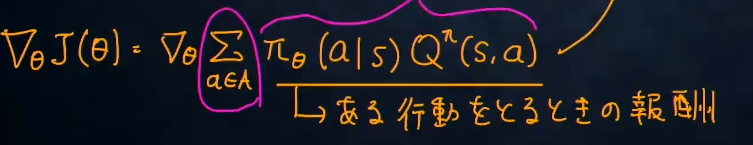 ∇θJ(θ) = ∇θ Σ a∈A πθ(a|s) Q^π(s,a)
↳ ある行動をとるときの報酬